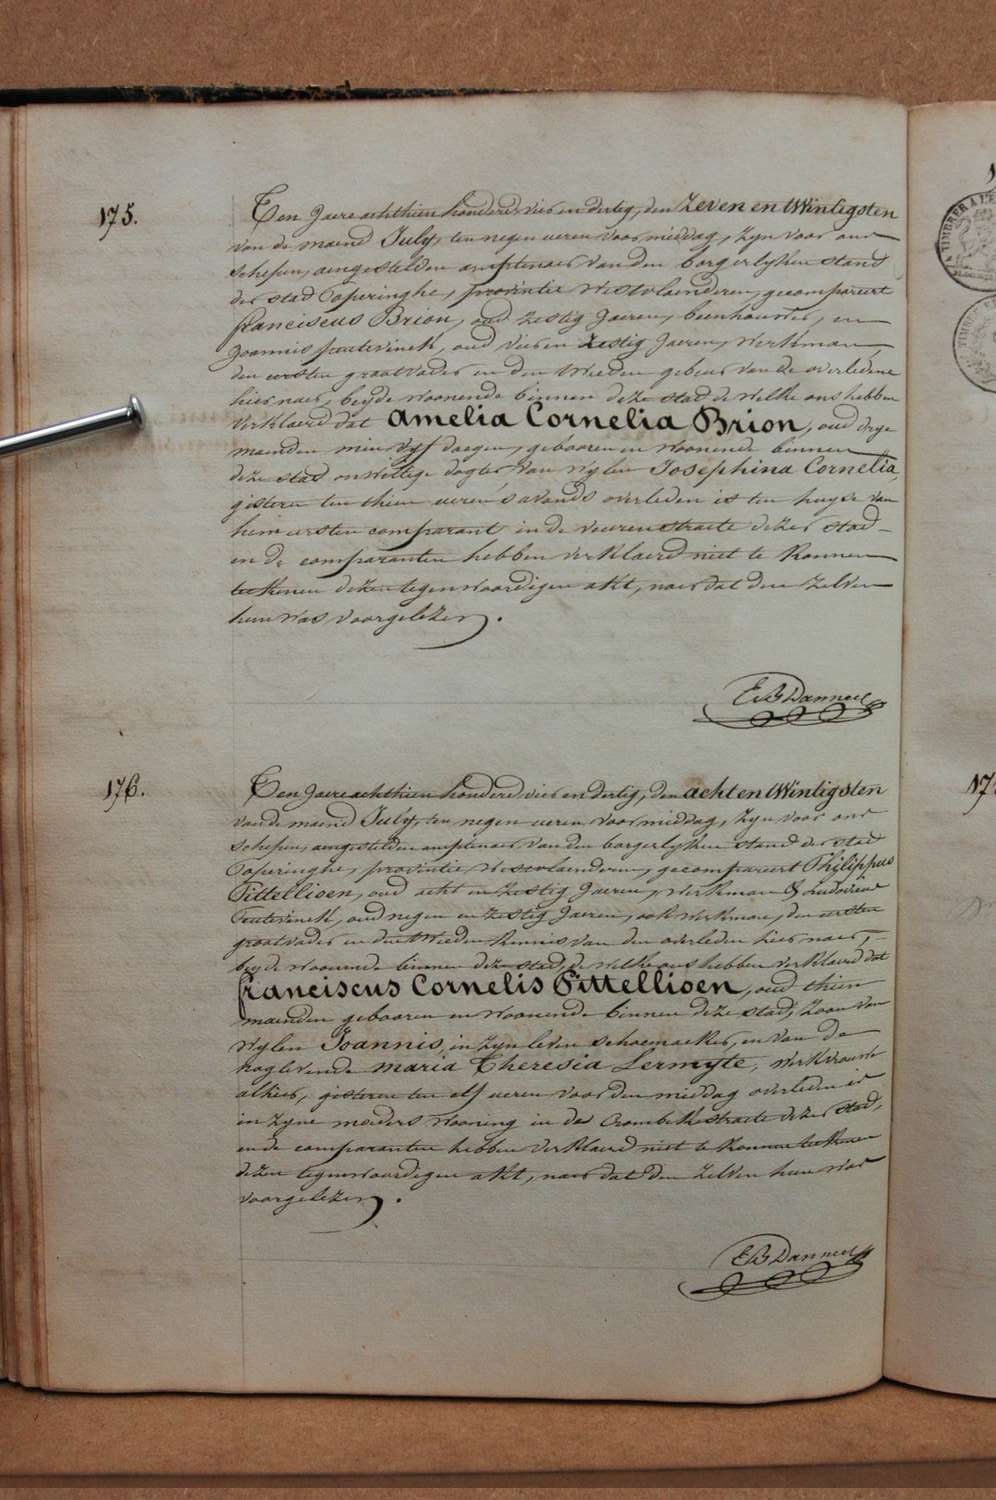 175.
Ten Jaere achthien honderd vier en dertig, den Zeven en twintigsten
van de maend July, ten negen ueren voormiddag, zyn voor ons
schepen, aengestelden amptenaer van den borgerlyken stand
der stad Poperinghe, provintie westvlaenderen, gecompareert
franciscus Brion, oud zestig Jaeren, beenhouwer, en
Joannis, oud vier en zestig Jaeren, werkman,
den eersten grootvader en den tweeden gebeur van de overledene
hier naer, beyde woonende binnen deze stad de welke ons hebben
verklaerd dat amelia Cornelia Brion, oud drye
maenden min vyf daegen, gebooren en woonende binnen
deze stad onwettige dogter van wylen Josephina Cornelia,
gisteren ten thien ueren 's avonds overleden is ten huyse van
hem eersten comparant in de veurenstraete dezer stad
en de comparanten hebben verklaerd niet te konnen
teekenen dezen tegenwoordigen akt, naer dat den zelven
hun was voorgelezen.
E B Danneel
176.
Ten Jaere achthien honderd vier en dertig, den acht en twintigsten
van de maend July, ten negen ueren voormiddag, zyn voor ons
schepen, aengestelden amptenaer van den borgerlyken stand der stad
Poperinghe, provintie westvlaenderen, gecompareert Philippus
Pittellioen, oud acht en zestig Jaeren, werkman &
oud negen en zestig Jaeren, ook werkman, den eersten
grootvader en den tweeden kennis van den overleden hier naer,
beyde woonende binnen deze stad, de welke ons hebben verklaerd dat
franciscus Cornelis Pittellioen, oud thien
maenden gebooren en woonende binnen deze stad, zoon van
wylen Joannis, in zyn leven schoemaeker, en van de
nog levende maria Theresia Lermyte, werkvrouw
alhier, gisteren ten elf ueren voor den middag overleden is
in zyne moeders wooning in de Crombekestraete dezer stad,
en de comparanten hebben verklaerd niet te konnen teekenen
dezen tegenwoordigen akt, naer dat den zelven hun was
voorgelezen.
E B Danneel
TIMBRE A L'E